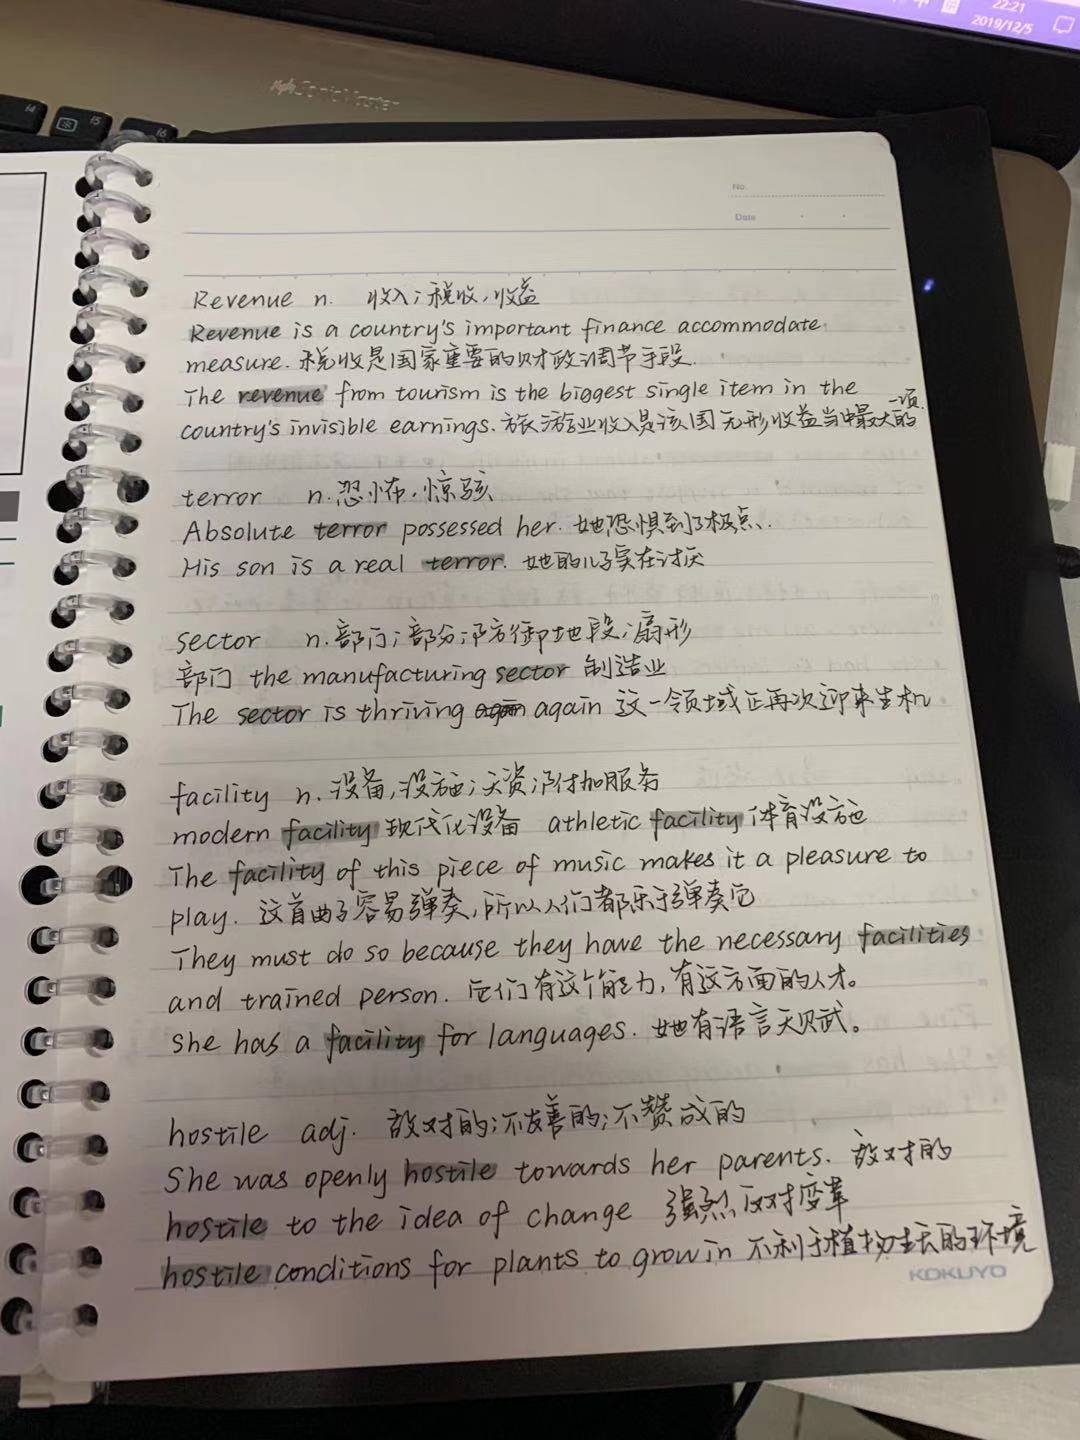 22:21
2019/12/5
SonicMaster
f4
f5
f6
No.
Date
Revenue n. 收入;税收,收益
Revenue is a country's important finance accommodate
measure. 税收是国家重要的财政调节手段.
The revenue from tourism is the biggest single item in the
country's invisible earnings. 旅游业收入是该国无形收益当中最大的一项.
terror n. 恐怖,惊骇
Absolute terror possessed her. 她恐惧到了极点.
His son is a real terror. 她的儿子实在讨厌
sector n. 部门;部分;防御地段;扇形
部门 the manufacturing sector 制造业
The sector is thriving again again 这一领域正再次迎来生机
facility n. 设备,设施;天资;附加服务
modern facility 现代化设备 athletic facility 体育设施
The facility of this piece of music makes it a pleasure to
play. 这首曲子容易弹奏,所以人们都乐于弹奏它
They must do so because they have the necessary facilities
and trained person. 它们有这个能力,有这方面的人才。
She has a facility for languages. 她有语言天赋。
hostile adj. 敌对的;不友善的;不赞成的
She was openly hostile towards her parents. 敌对的
hostile to the idea of change 强烈反对变革
hostile conditions for plants to grow in 不利于植物生长的环境
KOKUYO